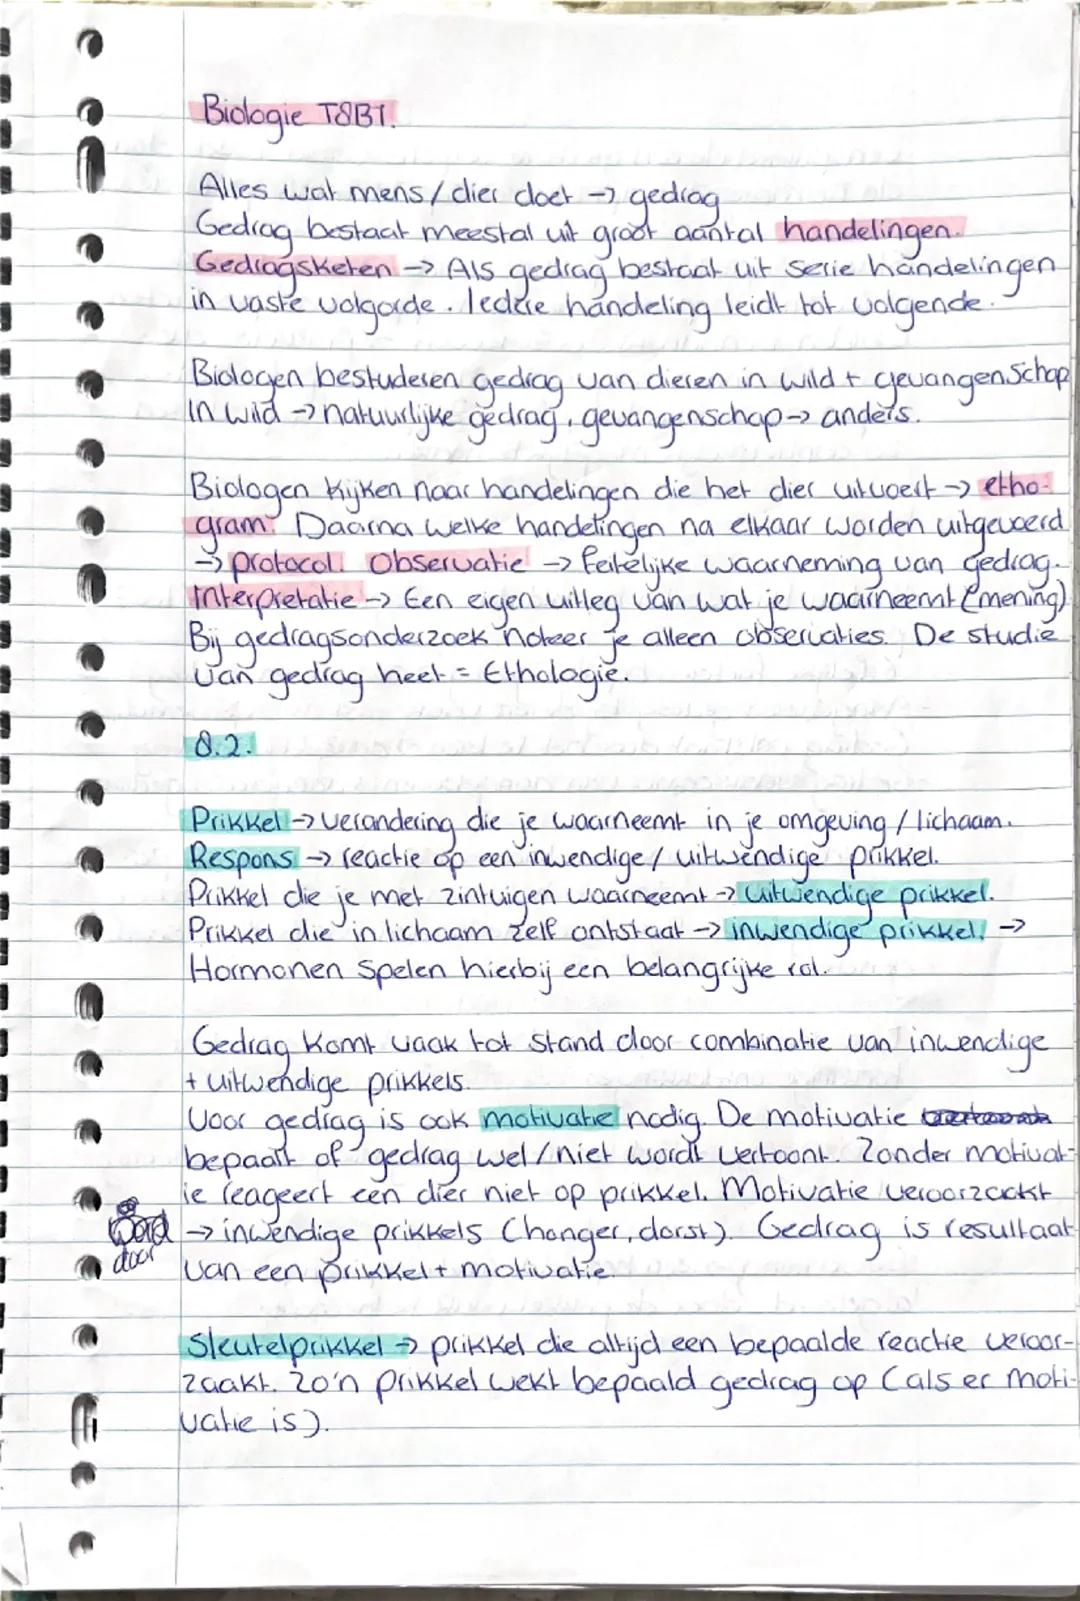 Biologie T8B1.
Alles wat mens/dier doet → gedrag
Gedrag bestaat meestal uit groot aantal handelingen.
Gedragsketen → Als gedrag bestaat uit serie handelingen
in vaste volgorde. Iedere handeling leidt tot volgende.
Biologen bestuderen gedrag van dieren in wild + gevangenschap
In wild → natuurlijke gedrag, gevangenschap → anders.
Biologen kijken naar handelingen die het dier uitvoert → etho-
gram. Daarna welke handelingen na elkaar worden uitgevoerd
→ protocol. Observatie → feitelijke waarneming van gedrag.
Interpretatie → Een eigen uitleg van wat je waarneemt (mening)
Bij gedragsonderzoek noteer je alleen observaties. De studie
van gedrag heet = Ethologie.
8.2.
Prikkel → verandering die je waarneemt in je omgeving / lichaam.
Respons → reactie op een inwendige / uitwendige prikkel.
Prikkel die je met zintuigen waarneemt → uitwendige prikkel.
Prikkel die in lichaam zelf ontstaat → inwendige prikkel. →
Hormonen spelen hierbij een belangrijke rol.
Gedrag komt vaak tot stand door combinatie van inwendige
+ uitwendige prikkels.
Voor gedrag is ook motivatie nodig. De motivatie
bepaart of gedrag wel/niet wordt vertoont. Zonder motivat-
ie reageert een dier niet op prikkel. Motivatie veroorzaakt
word door → inwendige prikkels (honger, dorst). Gedrag is resultaat
van een prikkel + motivatie.
Sleutelprikkel → prikkel die altijd een bepaalde reactie veroor-
zaakt. Zo'n prikkel wekt bepaald gedrag op (als er moti-
vatie is).